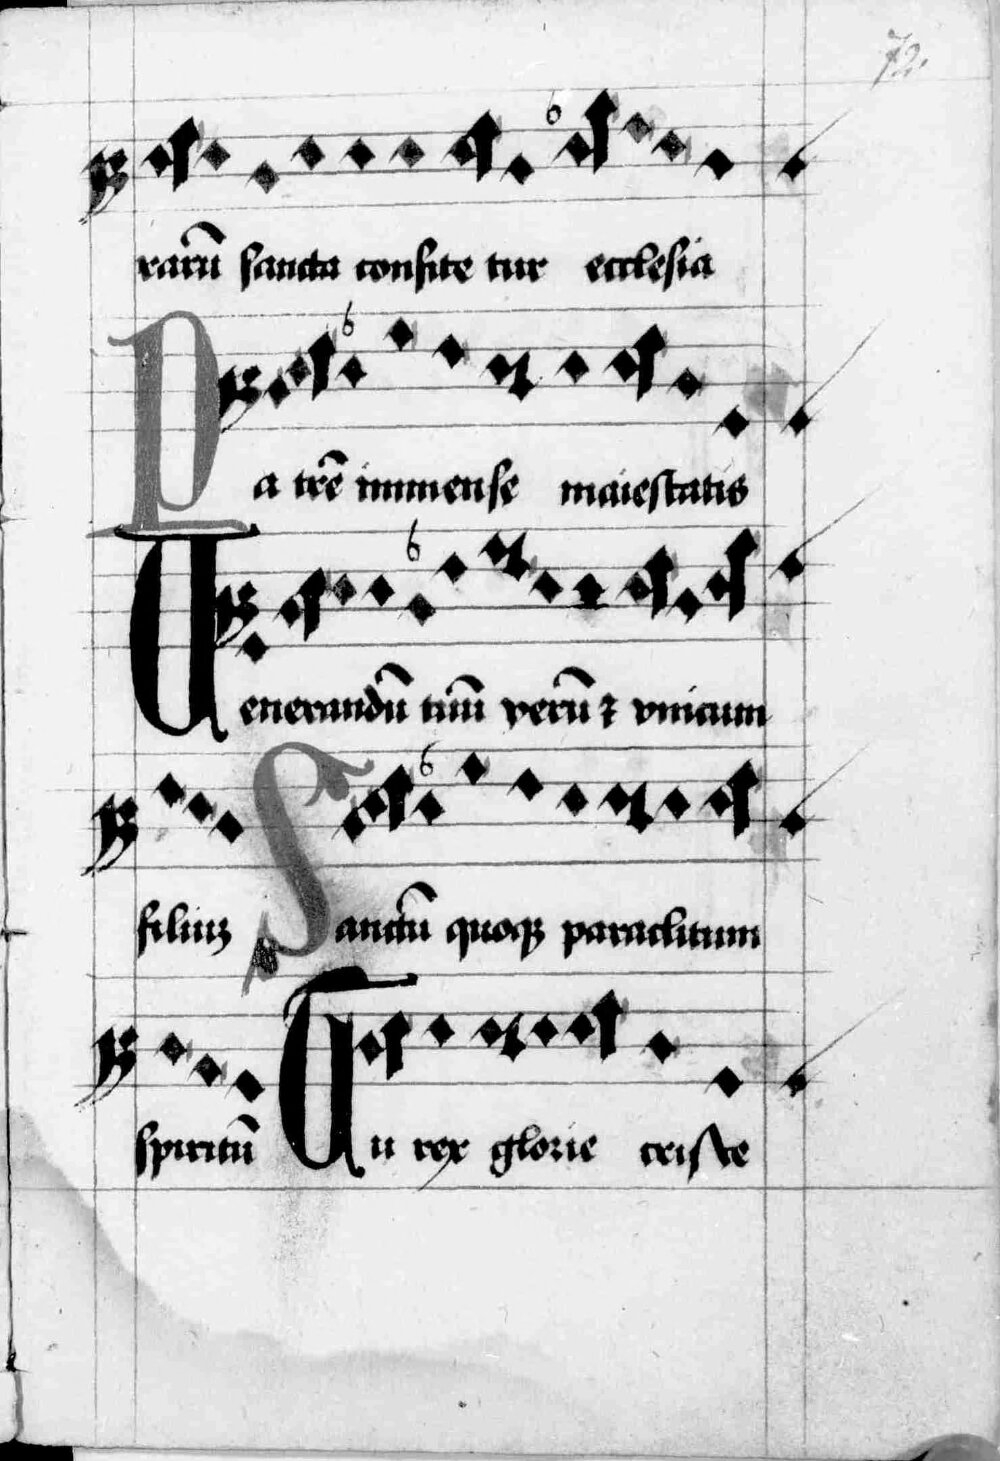 72.
rarū sancta confite tur ecclesia
Pa trē immense maiestatis
Uenerandū tuū verū ⁊ vnicum
filiuꝫ Sanctū quoqꝫ paraclitum
spiritū Tu rex glorie criste